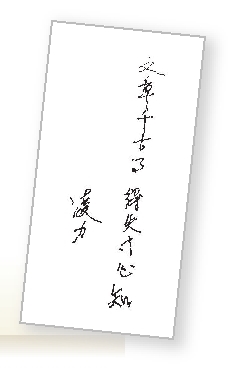 文章千古事 得失寸心知
凌力